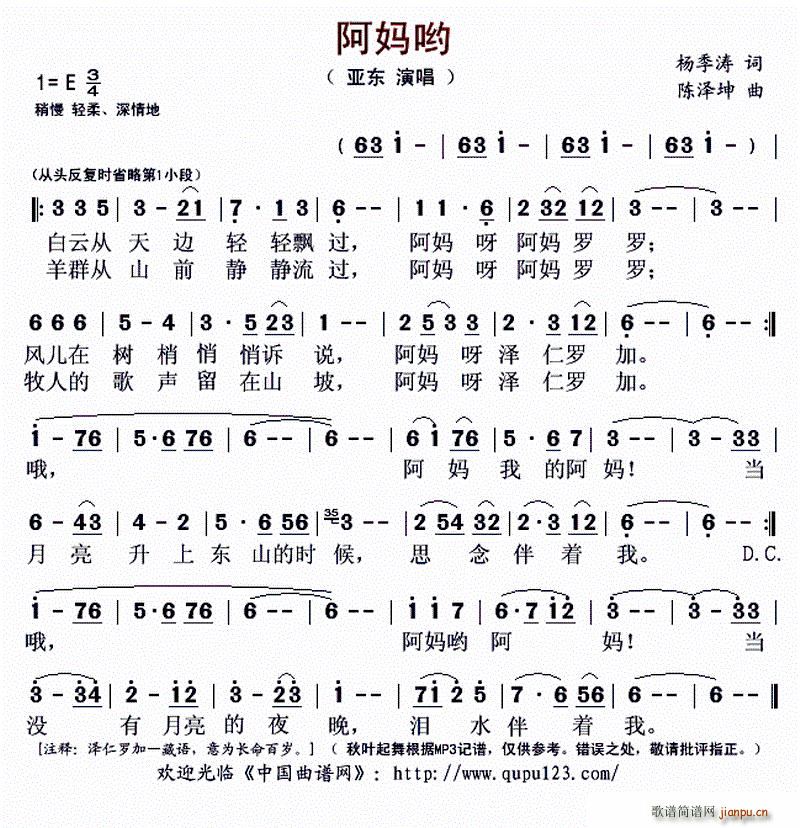 阿妈哟
1=E 3/4
( 亚东 演唱 )
杨季涛 词
陈泽坤 曲
稍慢 轻柔、深情地
( 63 i - | 63 i - | 63 i - | 63 i - ) |
(从头反复时省略第1小段)
‖: 3 3 5 | 3 - 21 | 7 · 1 3 | 6 - - | 1 1 · 6 | 2 32 12 | 3 - - | 3 - - |
白云从 天 边 轻 轻飘 过, 阿妈 呀 阿妈 罗 罗;
羊群从 山 前 静 静流 过, 阿妈 呀 阿妈 罗 罗;
6 6 6 | 5 - 4 | 3 · 5 23 | 1 - - | 2 53 3 | 2 · 3 12 | 6 - - | 6 - - :‖
风儿在 树 梢 悄 悄诉 说, 阿妈 呀 泽 仁罗 加。
牧人的 歌 声 留 在山 坡, 阿妈 呀 泽 仁罗 加。
i - 76 | 5·6 76 | 6 - - | 6 - - | 6i 76 | 5 · 6 7 | 3 - - | 3 - 33 |
哦, 阿 妈 我 的阿 妈! 当
6 - 43 | 4 - 2 | 5 · 6 56 | 35 3 - - | 2 54 32 | 2·3 12 | 6 - - | 6 - - :‖
月 亮 升 上 东 山的时 候, 思 念 伴 着 我。 D.C.
i - 76 | 5·6 76 | 6 - - | 6 - - | i i 7 | 6·7 i2 | 3 - - | 3 - 33 |
哦, 阿妈哟 阿 妈! 当
3 - 34 | 2 - 12 | 3 - 23 | 1 - - | 7i 2 5 | 7 · 6 56 | 6 - - | 6 - - ‖
没 有 月亮 的 夜 晚, 泪 水 伴 着 我。
[注释: 泽仁罗加—藏语, 意为长命百岁。] ( 秋叶起舞根据MP3记谱, 仅供参考。错误之处, 敬请批评指正。)
欢迎光临《中国曲谱网》: http://www.qupu123.com/
歌谱简谱网 jianpu.cn